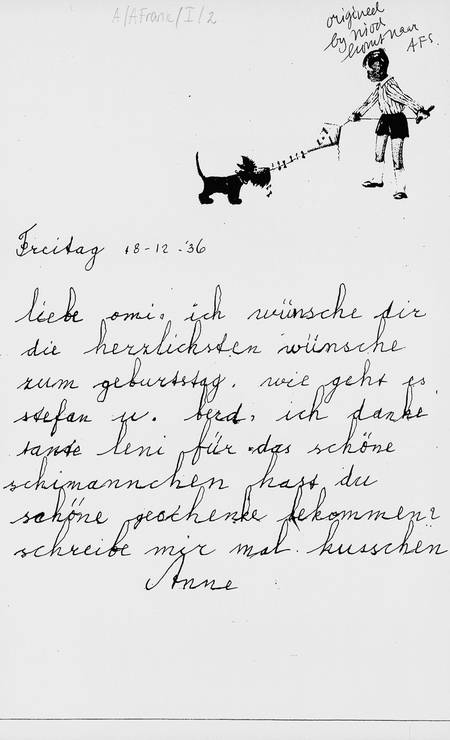 A/AFrank/I/2
origineel
bij niod
komt naar
AFS.
Freitag 18-12-'36
liebe omi, ich wünsche dir
die herzlicksten wünsche
zum geburtstag. wie geht es
stefan u. berd, ich danke
tante leni für das schöne
schimannchen hast du
schöne geschenke bekommen?
schreibe mir mal. kusschen
Anne